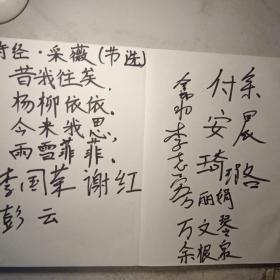 诗经·采薇(节选)
昔我往矣.
杨柳依依.
今来我思,
雨雪菲菲.
李国荣 谢红
彭云
余晨璐
付安琦
李志芳 丽娟
万文琴
余根泉